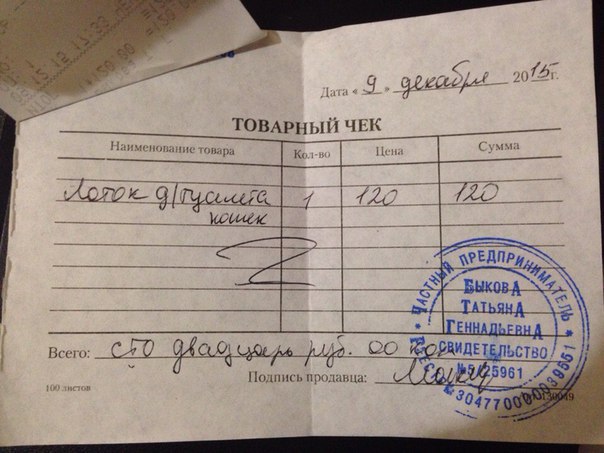 Дата « 9 » декабря 2015г.
ТОВАРНЫЙ ЧЕК
Наименование товара Кол-во Цена Сумма
Лоток д/туалета 1 120 120
кошек
Всего: сто двадцать руб. 00 коп.
Подпись продавца:
100 листов
ЧАСТНЫЙ ПРЕДПРИНИМАТЕЛЬ
БЫКОВА
ТАТЬЯНА
ГЕННАДЬЕВНА
СВИДЕТЕЛЬСТВО
№5/25961